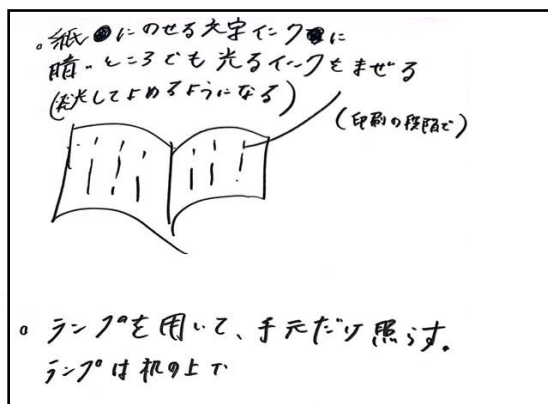 。紙にのせる文字インクに
暗いところでも光るインクをまぜる
(発光してよめるようになる)
(印刷の段階で)
。ランプを用いて、手元だけ照らす。
ランプは机の上で